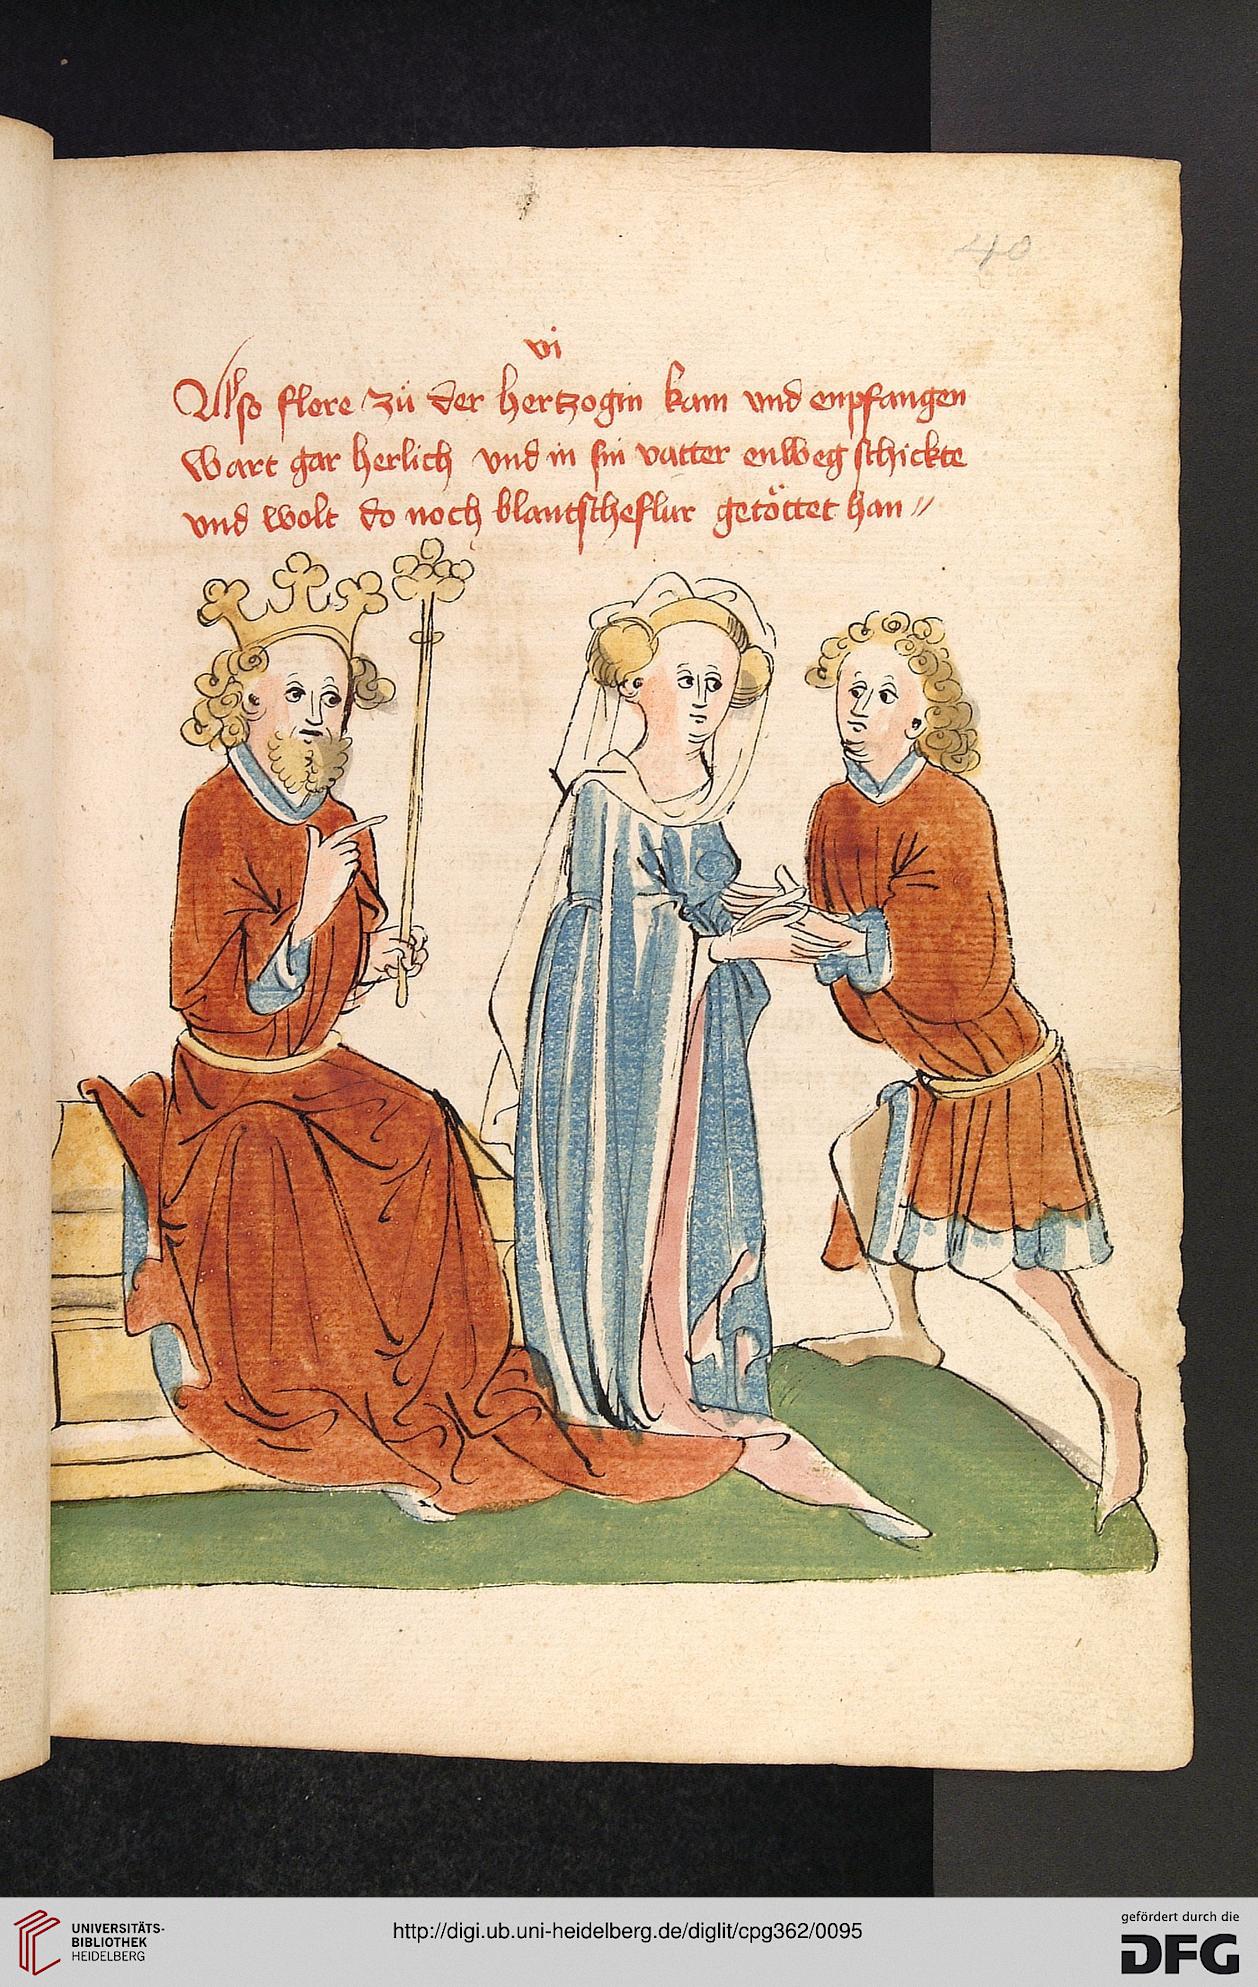 40
vi
Also flore zü der hertzogin kam und enpfangen
wart gar herlich und in sin vatter enweg schickte
und wolt do noch blantscheflur getöttet han //
UNIVERSITÄTS-
BIBLIOTHEK
HEIDELBERG
http://digi.ub.uni-heidelberg.de/diglit/cpg362/0095
gefördert durch die
DFG